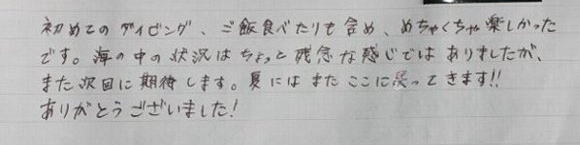 初めてのダイビング、ご飯食べたりも含め、めちゃくちゃ楽しかった
です。海の中の状況はちょっと残念な感じではありましたが、
また次回に期待します。夏にはまたここに戻ってきます!!
ありがとうございました!